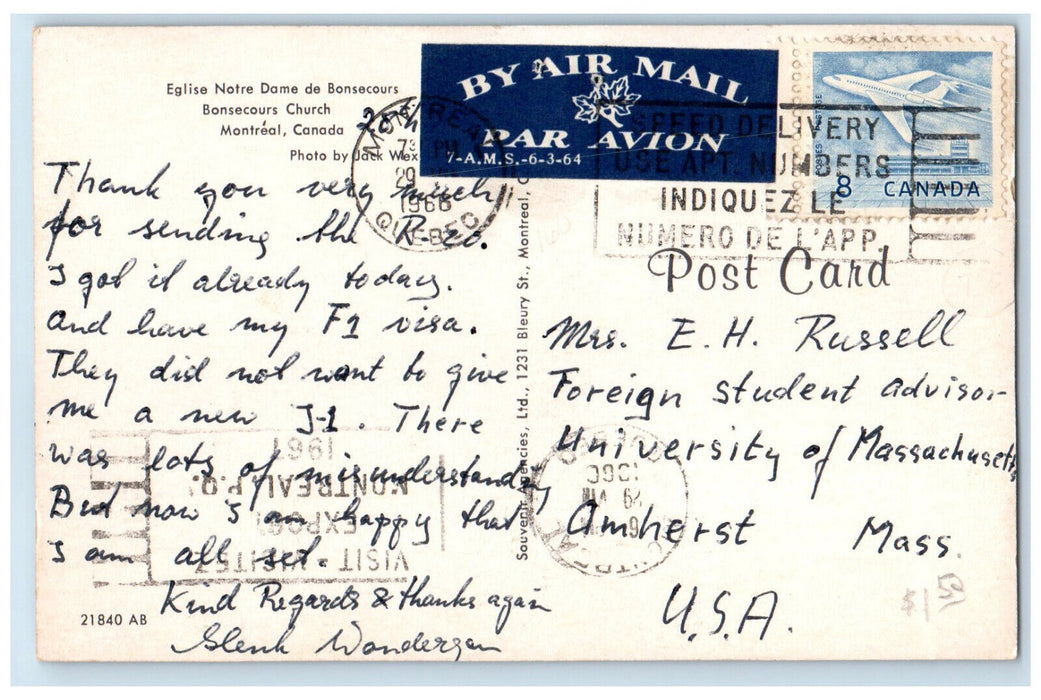 Eglise Notre Dame de Bonsecours
Bonsecours Church
Montréal, Canada
Photo by Jack
BY AIR MAIL
PAR AVION
7-A.M.S.-6-3-64
MONTREAL
PM
29
1966
QUEBEC
SPEED DELIVERY
USE APT. NUMBERS
INDIQUEZ LE
NUMERO DE L'APP.
POSTAGE
8 CANADA
Post Card
Thank you very much
for sending the
I got it already today.
and have my F1 visa.
They did not want to give
me a new J-1. There
was lots of misunderstanding
But now I am happy that
I am all set.
Kind Regards & thanks again
21840 AB
Ltd., 1231 Bleury St., Montreal,
Mrs. E. H. Russell
Foreign student advisor
University of Massachusetts
Amherst Mass.
U.S.A.
$1 50
VISIT - VISITEZ
EXPO
MONTREAL P.Q.
1967